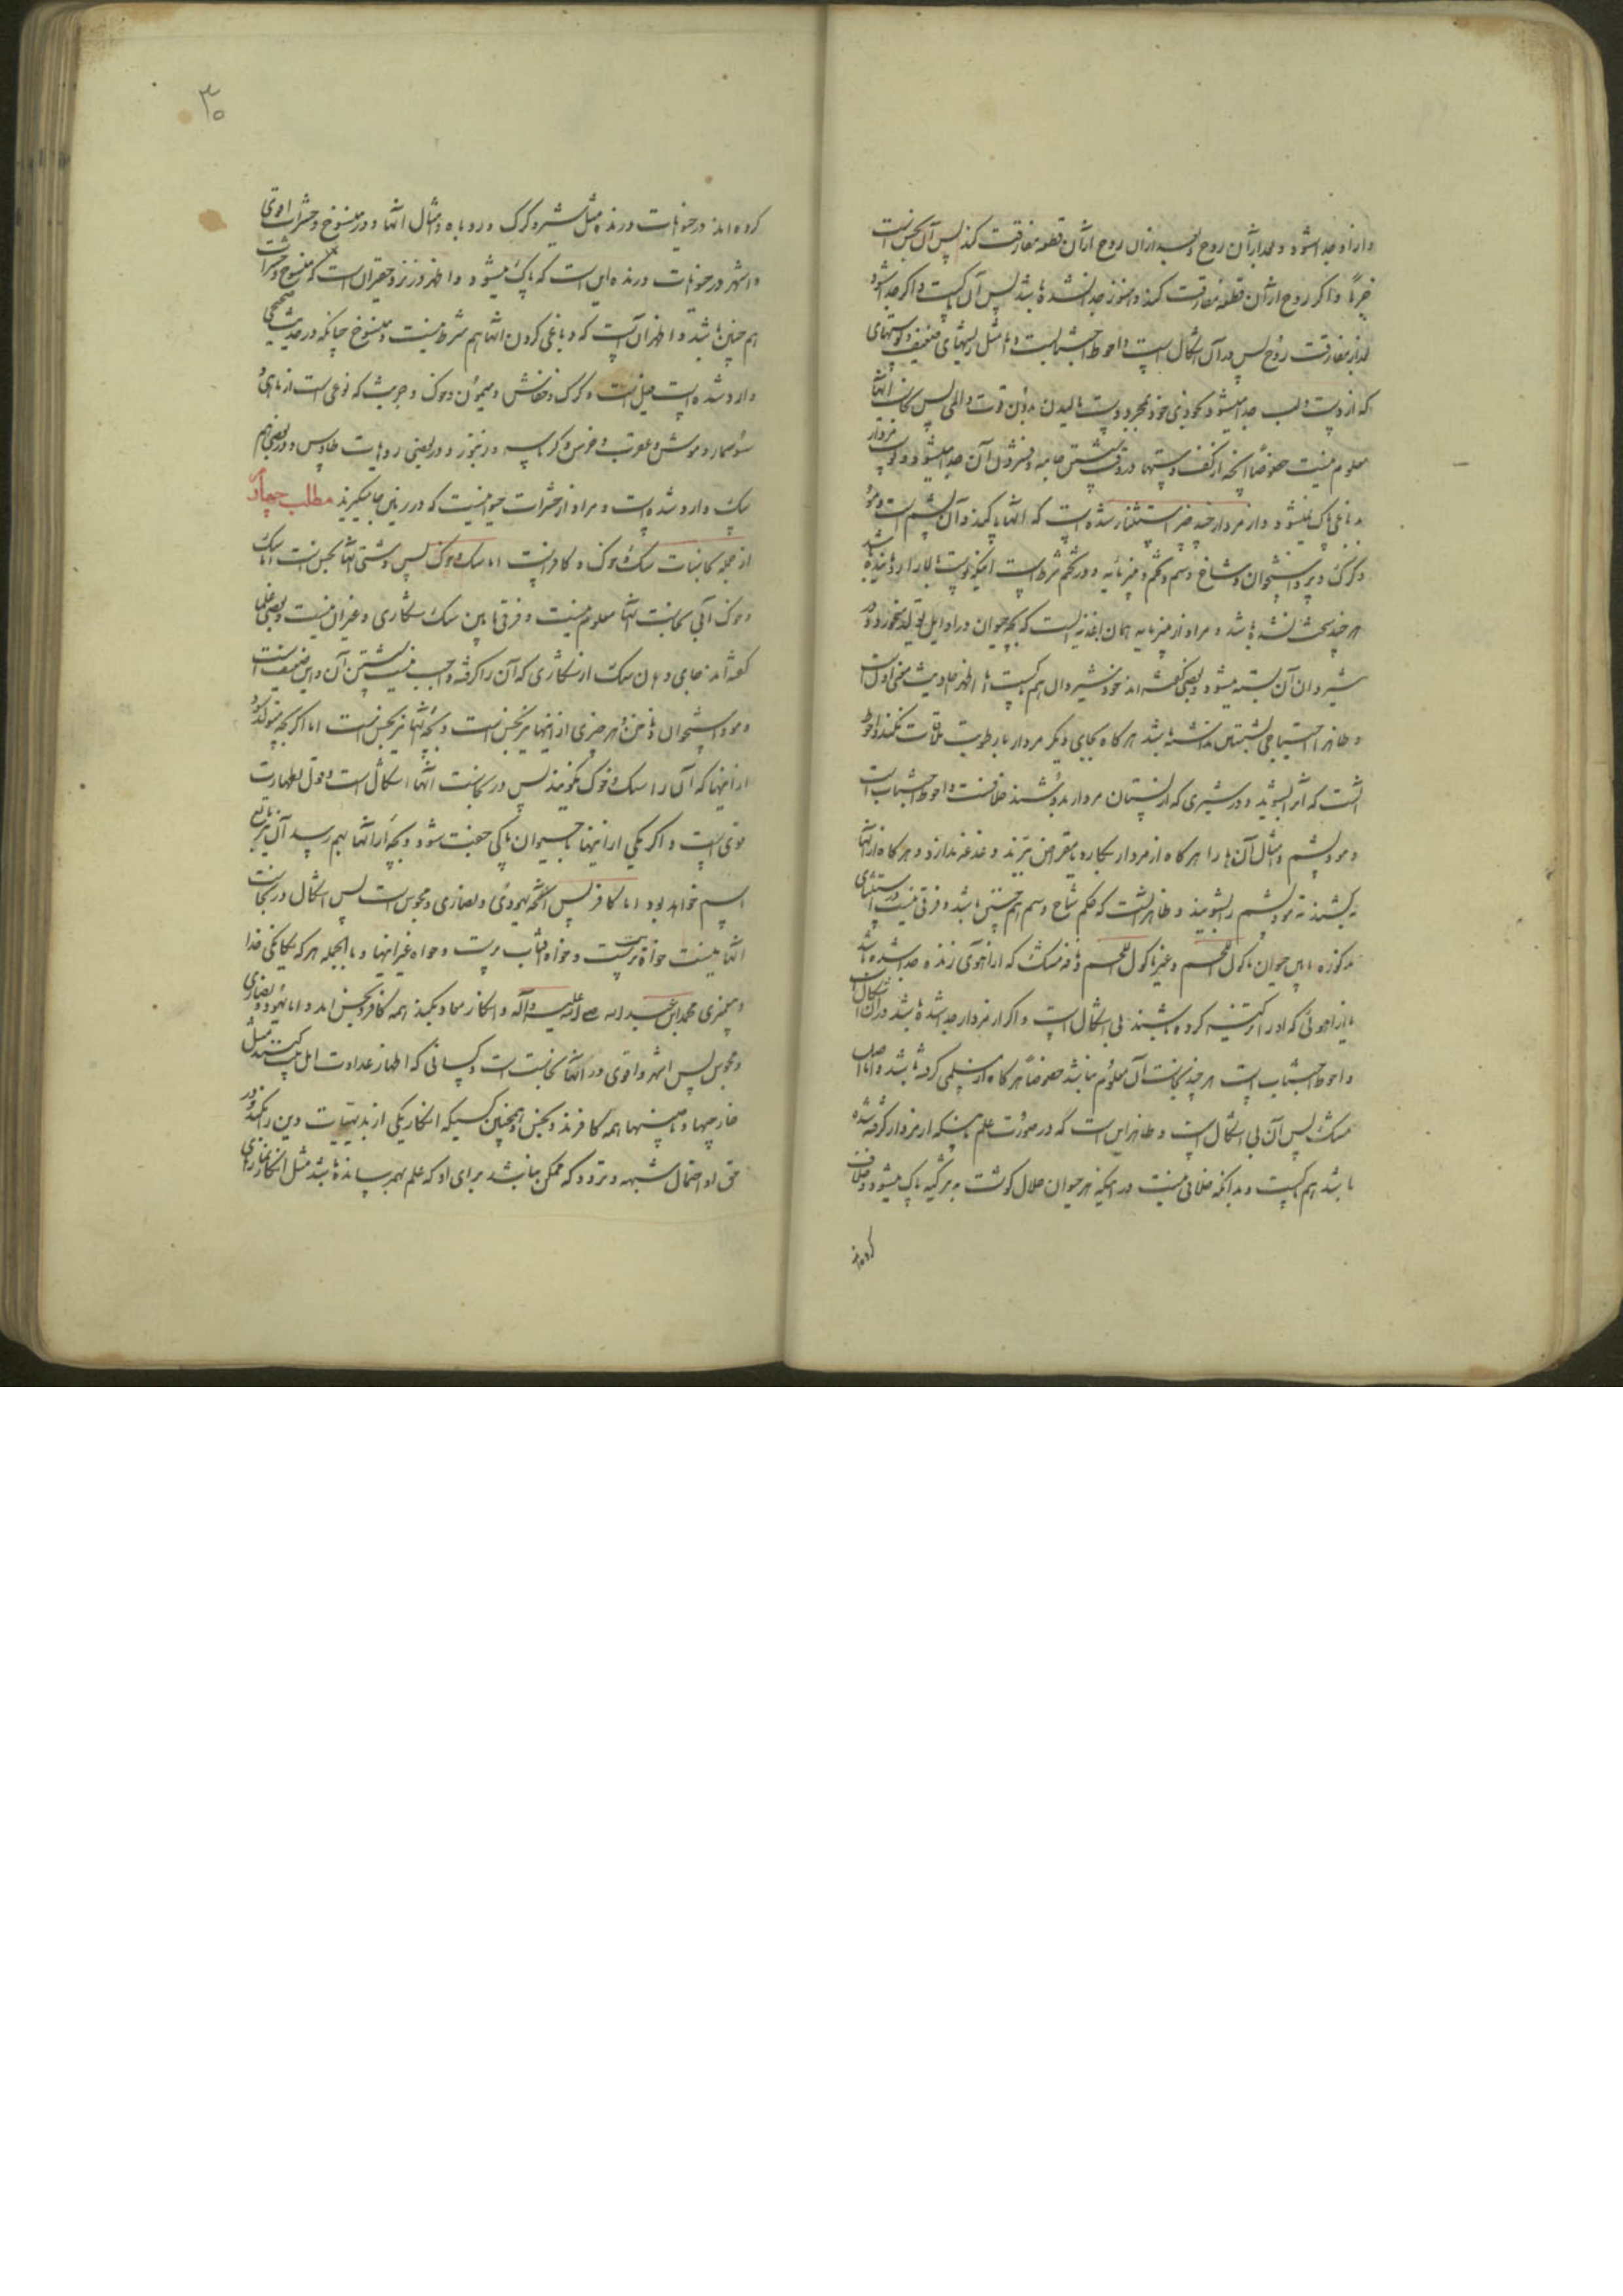 و از او جدا شود و بعد از آن روح و بعد از آن روح از آن قطعه مفارقت کند پس آن نجس است
جزماً و اگر روح از آن قطعه مفارقت کند و هنوز جدا نشده باشد پس آن پاکست و اگر جدا شود
بعد از مفارقت روح پس در آن اشکال است و احوط اجتنابست و اما مثل ریشهای ضعیف و پوستهای
که از دست و لب جدا میشود بخودی خود و بمجرد دست مالیدن بدون قوت و المی پس نجاست آنها
معلوم نیست خصوصاً آنچه از کف دستها در وقت شستن جامه و فشردن آن جدا میشود و پوست مردار
بدباغی پاک نمیشود و از مردار چند چیز استثنا شده است که آنها پاکند و آن پشم است و مو
و کرک و پر و استخوان و شاخ و سم و تخم و پنیر مایه و در تخم شرط است اینکه پوست بالا را
هر چند سخت نشده باشد و مراد از پنیر مایه همان غذائیست که بچه حیوان در اوایل تولد میخورد و در
شیردان آن بسته میشود و بعضی گفته‌اند خود شیردان هم پاکست اما اظهر احادیث معنی اول است
و ظاهرا احتیاجی بشستن نداشته باشد هر گاه بجای دیگر مردار با رطوبت ملاقات نکند و احوط
آنست که آنرا بشوید و در شیری که از پستان مردار بدوشند خلافست و احوط اجتناب است
و مو و پشم و امثال آن‌ها را هر گاه از مردار بکارد یا مقراض ببرند دغدغه ندارد و هر گاه از آنها
بکشند ته مو و پشم را بشویند و ظاهر آنست که حکم شاخ و سم هم چنین باشد و فرقی نیست در استثنای
مذکوره مابین حیوان ماکول اللحم و غیر ماکول اللحم و نافه مشک که از آهوی زنده جدا شده باشد
یا از آهوئی که او را تزکیه کرده باشند بی اشکال است و اگر از مردار جدا شده باشد در آن اشکال است
و احوط اجتناب است هر چند نجاست آن معلوم نباشد خصوصاً هر گاه از مسلمی گرفته باشد و اما اصل
مشک پس آن بی اشکال است و ظاهر این است که در صورت علم باینکه از مردار گرفته شده
باشد هم پاکست و بدانکه خلافی نیست در اینکه هر حیوان حلال گوشت به تزکیه پاک میشود و خلاف
کرده‌اند
۳۰
کرده‌اند در حیوانات درنده مثل شیر و گرگ و روباه و امثال آنها و در مسوخ و حشرات اقوی
و اشهر در حیوانات درنده این است که پاک میشود و اظهر در نزد حقیر آن است که مسوخ و حشرات
هم چنین باشد و اظهر آن است که دباغی کردن آنها هم شرط نیست و مسوخ چنانکه در حدیث صحیحی
وارد شده است فیل است و گرگ و خفاش و میمون و خوک و جریث که نوعی است از ماهی و
سوسمار و موش و عقرب و خرس و کرباسه و زنبور و در بعضی روایت طاوس و در بعضی هم
سگ وارد شده است و مراد از حشرات حیوانیست که در زمین جا میگیرند مطلب چهارم
از جمله نجاسات سگ و خوک و کافر است اما سگ و خوک پس دشتی آنها نجس است اما سگ
و خوک آبی نجاست آنها معلوم نیست و فرقی مابین سگ شکاری و غیر آن نیست و بعضی علما
گفته‌اند جای دهان سگ از شکاری که آن را گرفته واجب نیست شستن آن و این ضعیف است
و مو و استخوان و ناخن و هر چیزی از اینها نیز نجس است و بچه آنها نیز نجس است اما اگر بچه متولد شود
از اینها که آن را سگ و خوک نگویند پس در نجاست آنها اشکال است و قول بطهارت
قوی است و اگر یکی از اینها با حیوان پاکی جفت شود و بچه از آنها بهم رسد آن نیز تابع
اسم خواهد بود اما کافر پس آنچه یهودی و نصاری و مجوس است پس اشکال در نجاست
آنها نیست خواه بت پرست و خواه آفتاب پرست و خواه غیر اینها و بالجمله هر که یگانگی خدا
و پیغمبری محمد ابن عبد الله صلی الله علیه و آله و انکار معاد بکند همه کافر و نجس‌اند و اما یهود و نصاری
و مجوس پس اشهر و اقوی در آنها نجاست است و کسانی که اظهار عداوت اهل بیت کنند مثل
خارجیها و ناصبیها همه کافرند و نجس و همچنین کسیکه انکار یکی از بدیهیات دین را بکند و در
حق او احتمال شبهه و تردد که ممکن نباشد برای او که علم بهم رسانده باشد مثل انکار نمازهای